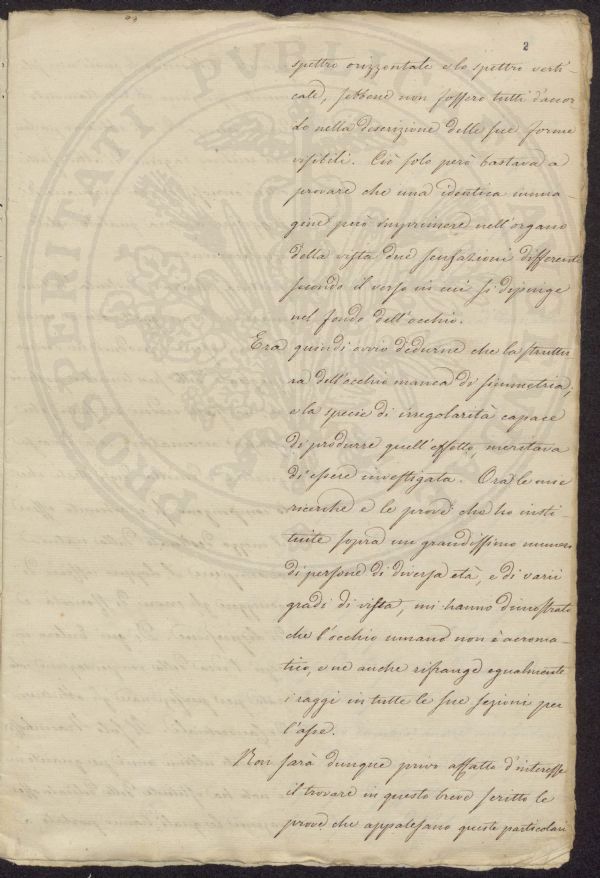 2
spettro orizzontale e lo spettro verti-
cale, sebbene non fossero tutti d'accor
do nella descrizione delle sue forme
visibili. Ciò solo però bastava a
provare che una identica imma
gine può imprimere nell'organo
della vista due sensazioni differenti
secondo il verso in cui si dipinge
nel fondo dell'occhio.
Era quindi ovvio dedurne che la struttu
ra dell'occhio manca di simmetria,
e la specie di irregolarità capace
di produrre quell'effetto meritava
di essere investigata. Ora le mie
ricerche e le prove che ho insti-
tuite sopra un grandissimo numero
di persone di diversa età, e di varii
gradi di vista, mi hanno dimostrato
che l'occhio umano non è acroma-
tico, e ne anche rifrange egualmente
i raggi in tutte le sue sezioni per
l'asse.
Non sarà dunque privo affatto d'interesse
il trovare in questo breve scritto le
prove che appalesano queste particolari
PROSPERITATI PUBLI